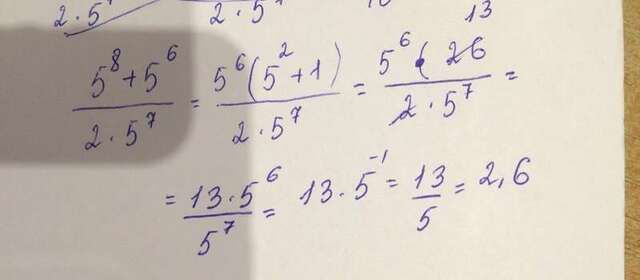 2 · 5
2 · 5
13
(5^8 + 5^6)/(2 · 5^7) = (5^6(5^2 + 1))/(2 · 5^7) = (5^6 · 26)/(2 · 5^7) =
= (13 · 5^6)/(5^7) = 13 · 5^(-1) = 13/5 = 2,6